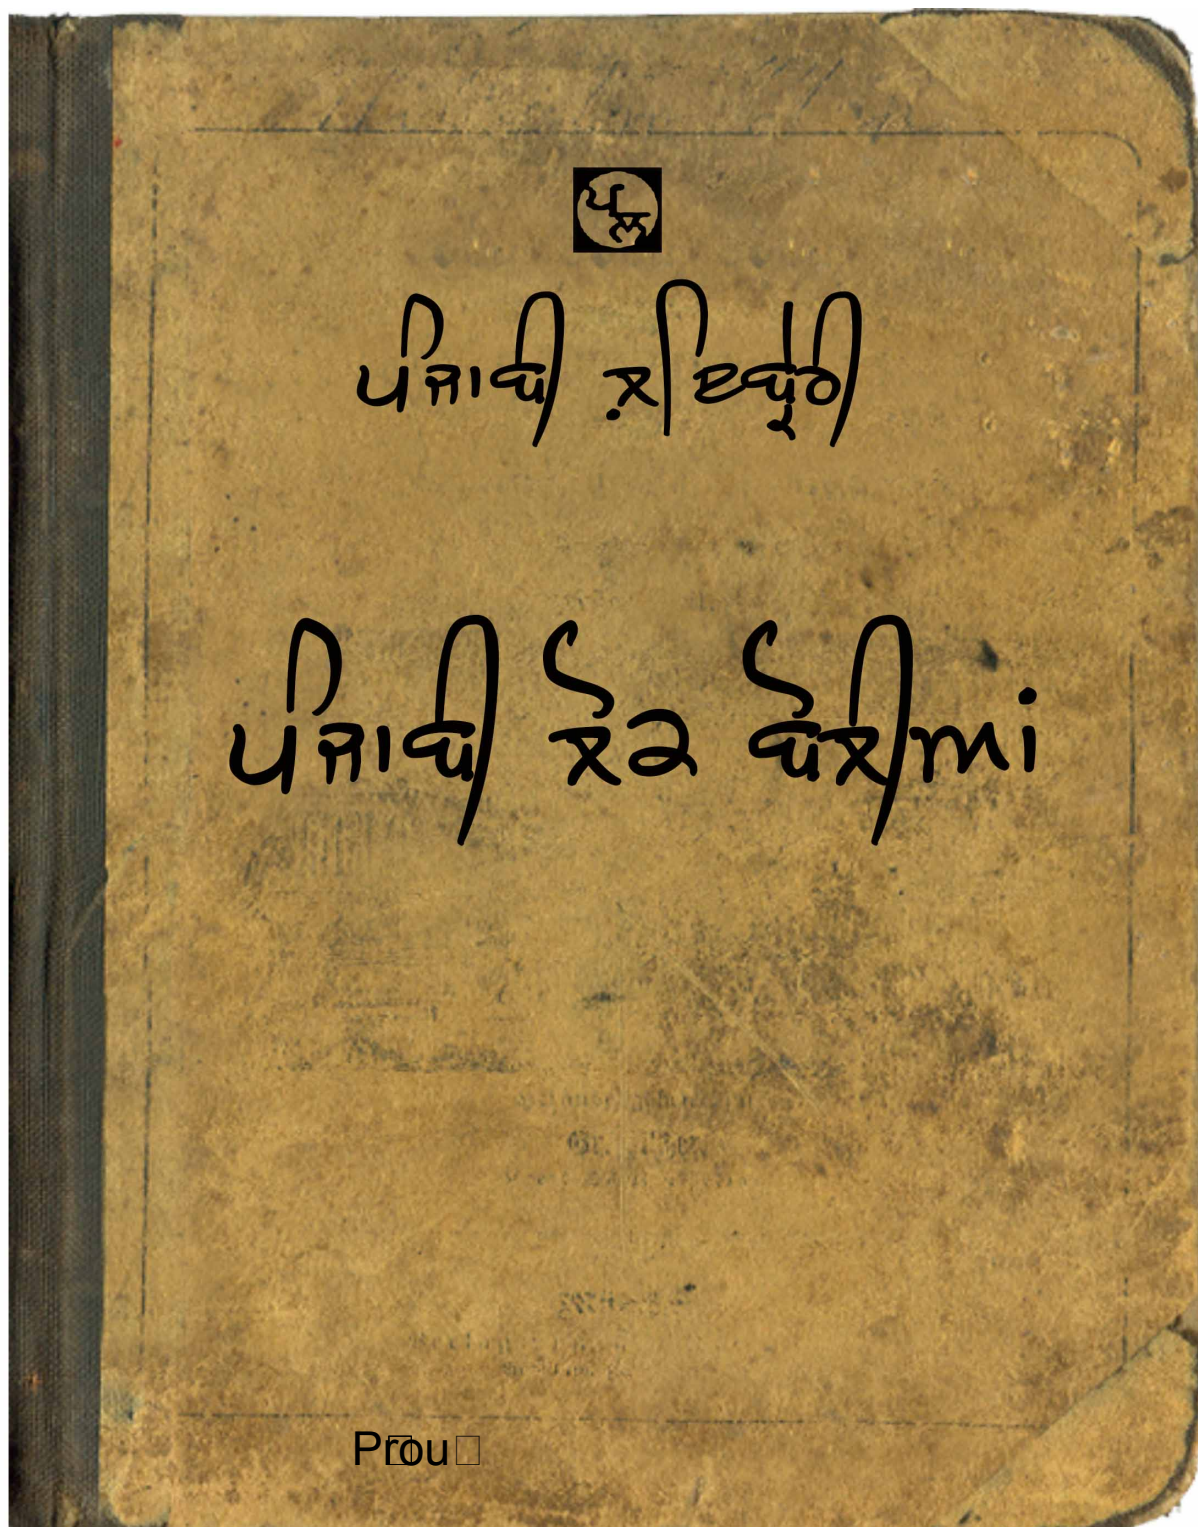 ਪਲ
ਪੰਜਾਬੀ ਲਾਇਬ੍ਰੇਰੀ
ਪੰਜਾਬੀ ਲੋਕ ਬੋਲੀਆਂ